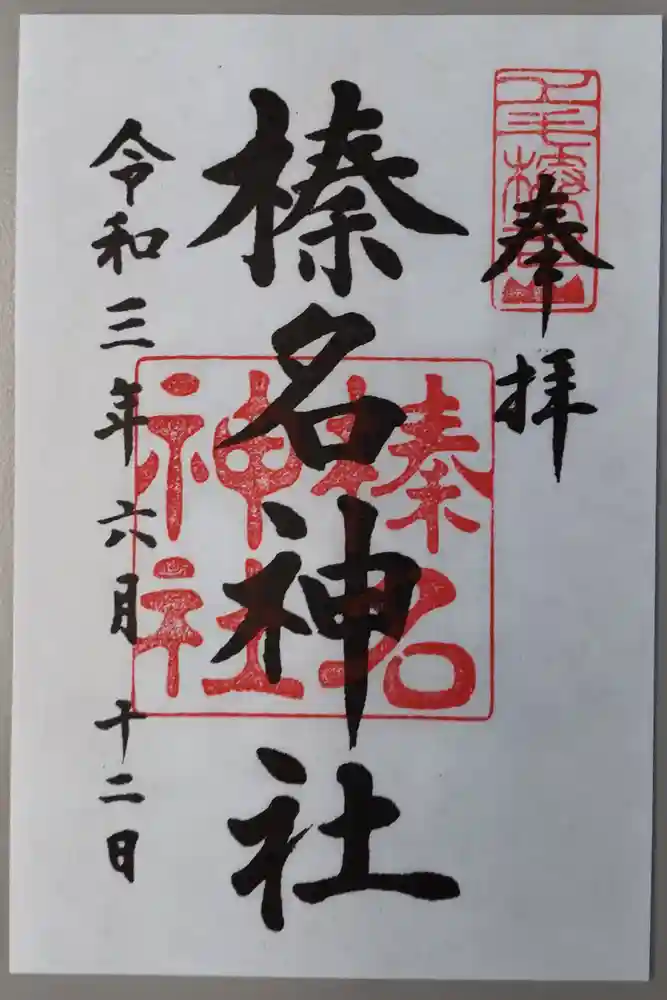 奉拝
榛名神社
榛名
神社
令和三年六月十二日